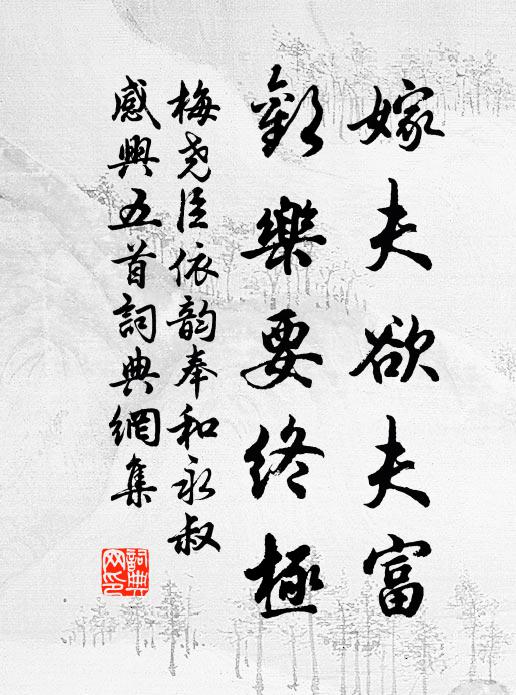 嫁夫欲夫富
歡樂要終極
梅堯臣依韵奉和永叔
感興五首詞典網集
詞典
网印